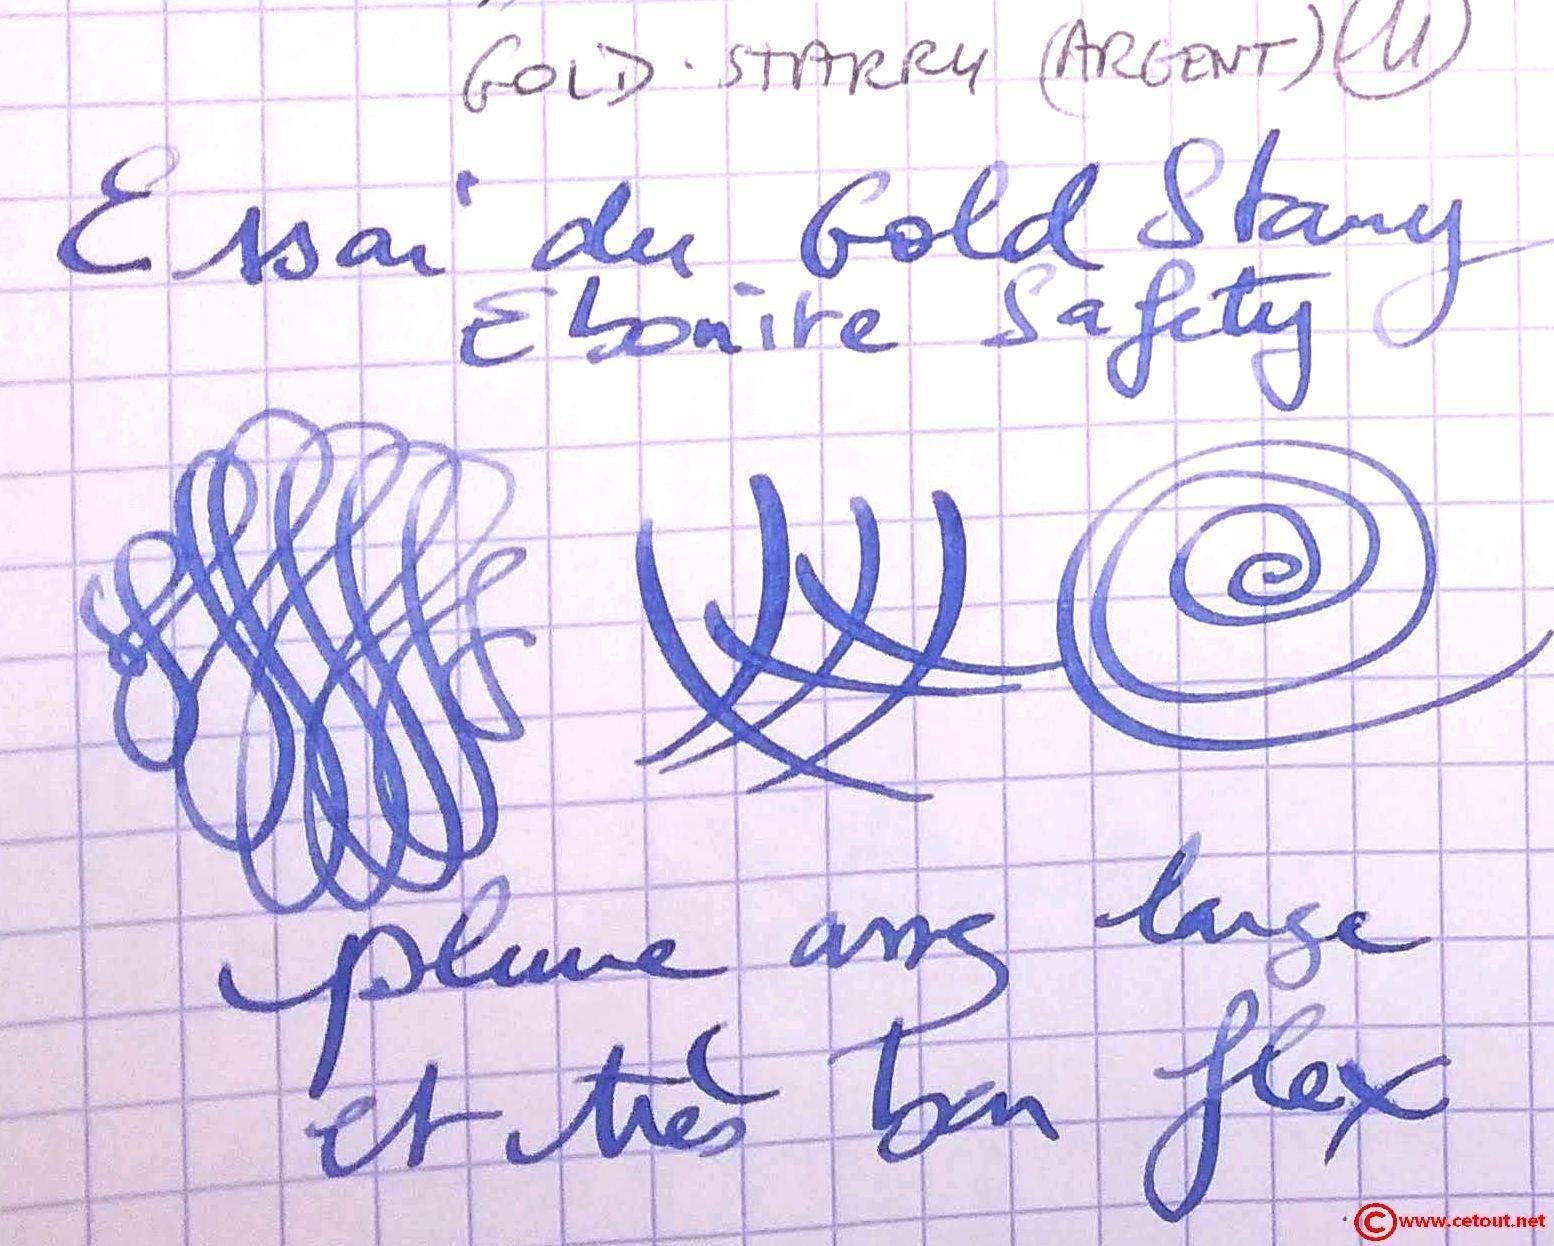 GOLD. STARRY (ARGENT)
Essai du Gold Starry
Ebonite Safety
plume assez large
et très bon flex
©www.cetout.net